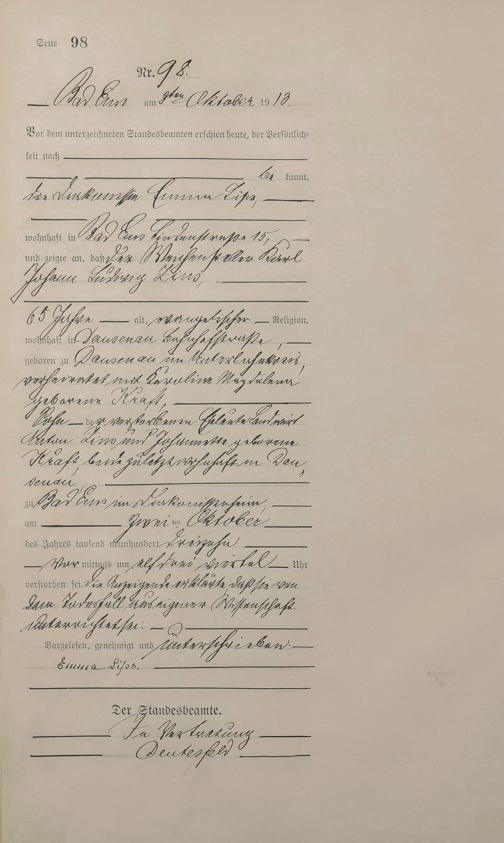 Seite 98
Nr. 98.
Bad Ems am 9ten Oktober 1913
Vor dem unterzeichneten Standesbeamten erschien heute, der Persönlich-
keit nach
be kannt,
die Diakonissin Emma Lips,
wohnhaft in Bad Ems Lindenstraße 15,
und zeigte an, daß der Weichensteller Karl
Johann Ludwig Zins,
65 Jahre alt, evangelischer Religion,
wohnhaft in Dausenau Bahnhofstraße,
geboren zu Dausenau im Unterlahnkreis,
verheiratet mit Karolina Magdalena
geborene Kraft,
Sohn der verstorbenen Eheleute Landwirt
Anton Zins und Johannette geborene
Kraft, beide zuletzt wohnhaft in Dau-
senau
zu Bad Ems im Diakonissenheim,
am zwei ten Oktober
des Jahres tausend neunhundert dreizehn
Vor mittags um elf drei viertel Uhr
verstorben sei. Die Anzeigende erklärte, daß sie von
dem Todesfall aus eigener Wissenschaft
unterrichtet sei.
Vorgelesen, genehmigt und unterschrieben
Emma Lips.
Der Standesbeamte.
In Vertretung